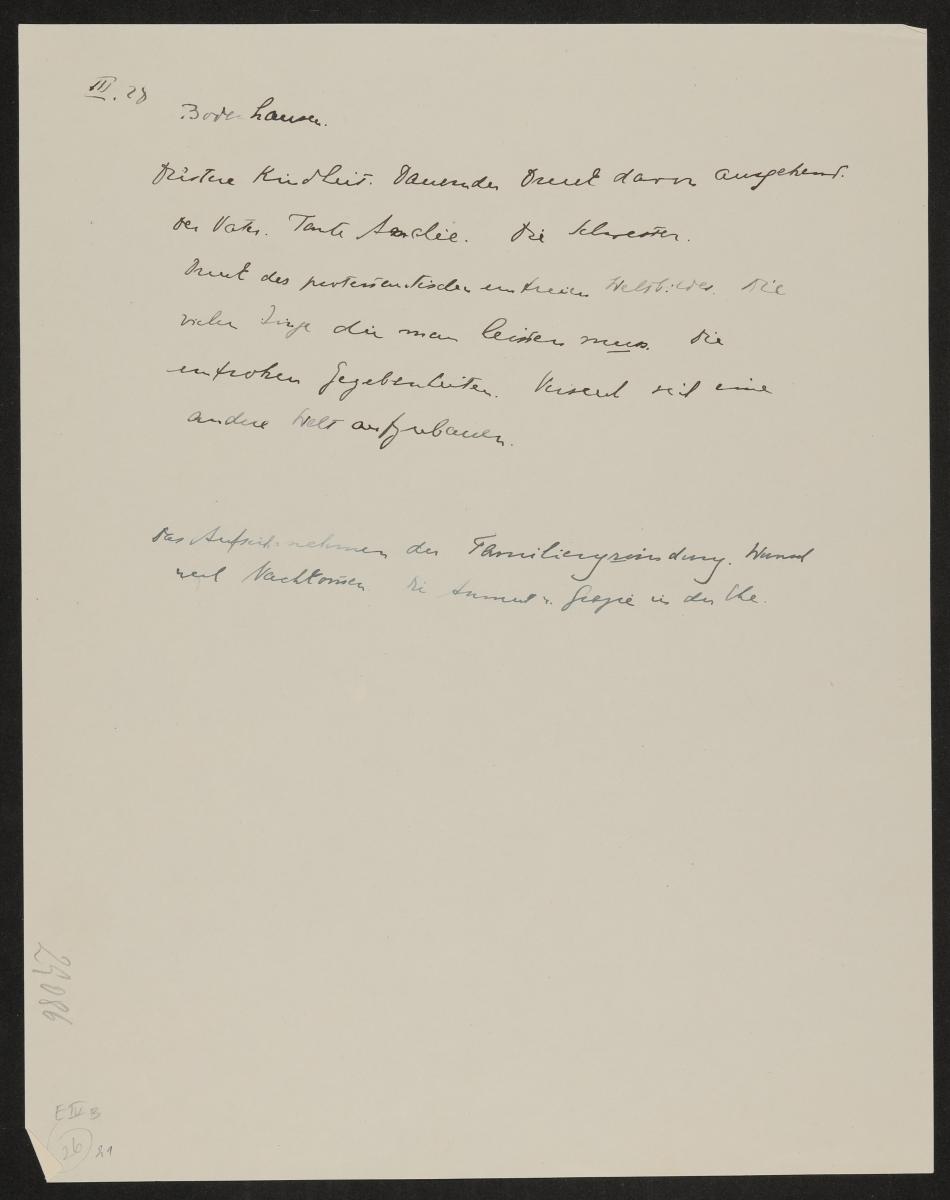 III. 28
Bodenhausen.
Düstere Kindheit. Dauernder Druck davon ausgehend.
Der Vater. Tante Amelie. Die Schwester.
Druck des protestantischen unfreien Weltbildes. Die
vielen Dinge die man leisten muss. Die
unfrohen Gegebenheiten. Versuch sich eine
andere Welt aufzubauen.
Das Aufsichnehmen der Familiengründung. Wunsch
nach Nachkommen. Die Anmut u. Grazie in der Ehe.
29086
E IV B
26 81